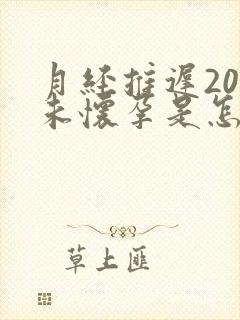 月经推遲20
未懷孕是怎
草上匪